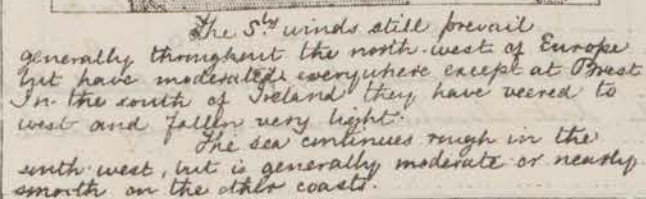 The S.ly winds still prevail
generally throughout the north-west of Europe
but have moderated everywhere except at Brest
In the south of Ireland they have veered to
west and fallen very light.
The sea continues rough in the
south-west, but is generally moderate or nearly
smooth on the other coasts.